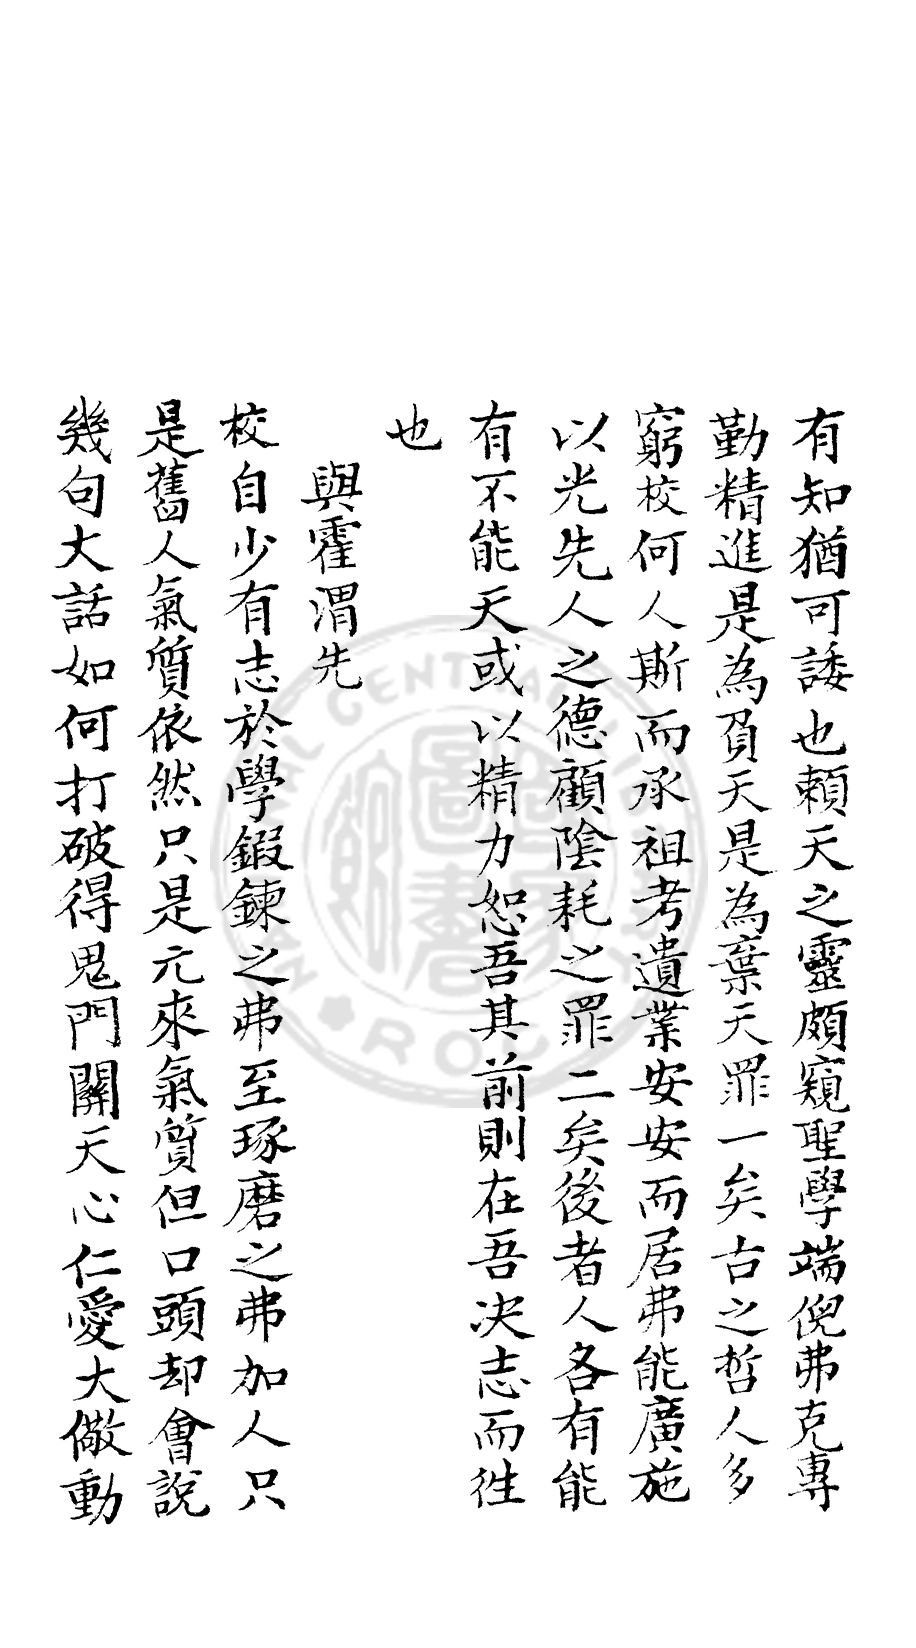 有知猶可諉也賴天之靈頗窺聖學端倪弗克專
勤精進是為負天是為棄天罪一矣古之哲人多
窮校何人斯而承祖考遺業安安而居弗能廣施
以光先人之德顧陰耗之罪二矣後者人各有能
有不能天或以精力恕吾其前則在吾决志而徃
也
與霍渭先
校自少有志於學鍜鍊之弗至琢磨之弗加人只
是舊人氣質依然只是元來氣質但口頭却會說
幾句大話如何打破得鬼門關天心仁愛大儆動
NATIONAL CENTRAL LIBRARY
R.O.C.
國家圖書館